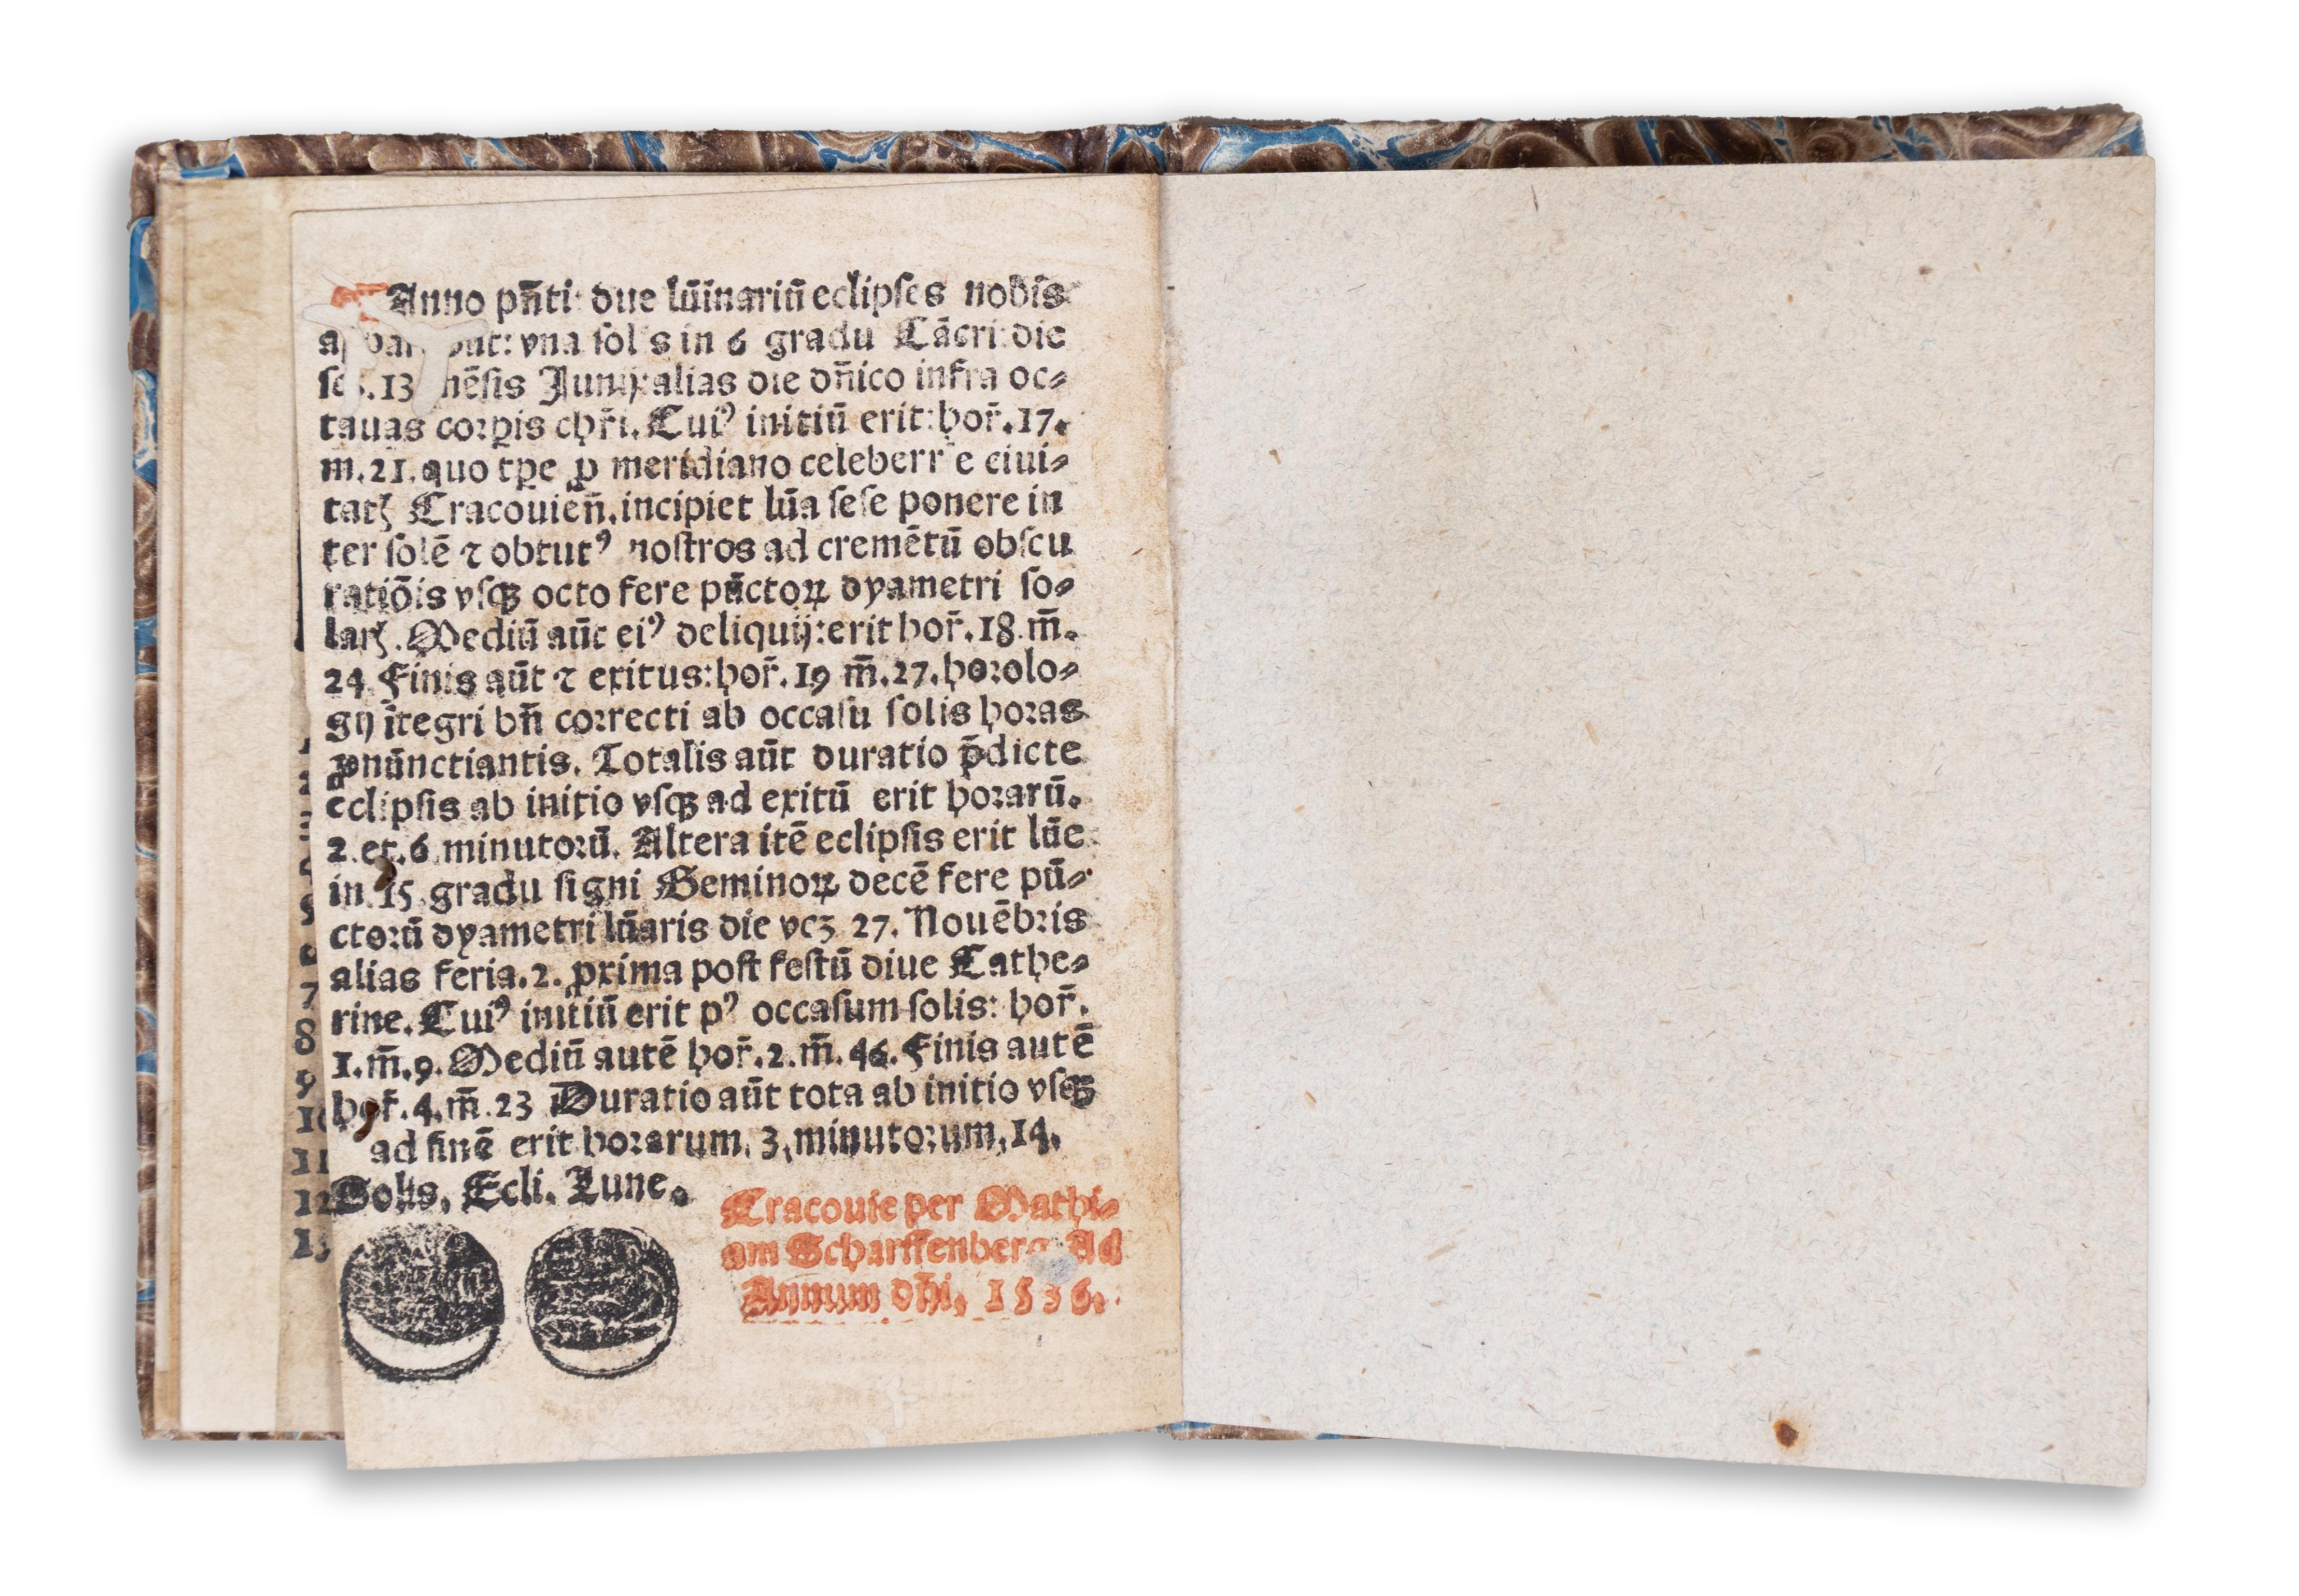 Anno pñti: due lūīnariū eclipſes nobis
vna ſolis in 6 gradu Cācri: die
.13 mēſis Junij: alias die dñico infra oc⸗
tauas corꝑis chr̃i. Cuiꝰ initiū erit: hor̃. 17.
m. 21. quo tꝑe ꝓ meridiano celeberr e ciui⸗
tatꝭ Cracouieñ. incipiet lūa ſeſe ponere in
ter ſolē ⁊ obtutꝰ noſtros ad cremētū obſcu
ratiōis vſqꝫ octo fere pūctoꝝ dyametri ſo⸗
larꝭ. Mediū aūt eiꝰ deliquij: erit hor̃. 18. m̄.
24. Finis aūt ⁊ exitus: hor̃. 19 m̄. 27. horolo⸗
gij ītegri bñ correcti ab occaſu ſolis horas
ꝓnūnctiantis. Totalis aūt duratio p̄dicte
eclipſis ab initio vſqꝫ ad exitū erit horarū.
2. et. 6. minutorū. Altera itē eclipſis erit lūe
in 15. gradu ſigni Geminoꝝ decē fere pū⸗
ctorū dyametri lūaris die vcꝫ 27. Nouēbris
alias feria. 2. ꝓxima poſt feſtū diue Cathe⸗
rine. Cuiꝰ initiū erit pꝰ occaſum ſolis: hor̃.
1. m̄. 9. Mediū autē hor̃. 2. m̄. 46. Finis autē
hor̃. 4. m̄. 23 Duratio aūt tota ab initio vſqꝫ
ad finē erit horarum. 3. minutorum. 14.
Solis. Ecli. Lune.
Cracouie per Mathi⸗
am Scharffenberg Ad
Annum dñi. 1536.
7
8
9
10
11
12